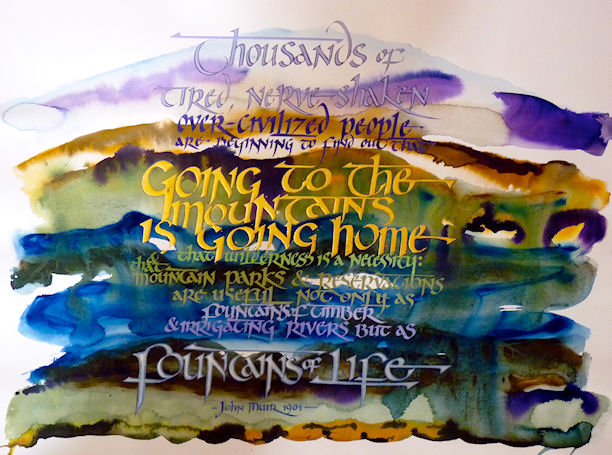 Thousands of
tired, nerve-shaken
over-civilized people
are beginning to find out that
Going to the
mountains
is going home
& that wilderness is a necessity:
that
mountain parks & reservations
are useful not only as
fountains of timber
& irrigating rivers but as
fountains of life
- John Muir 1901 -